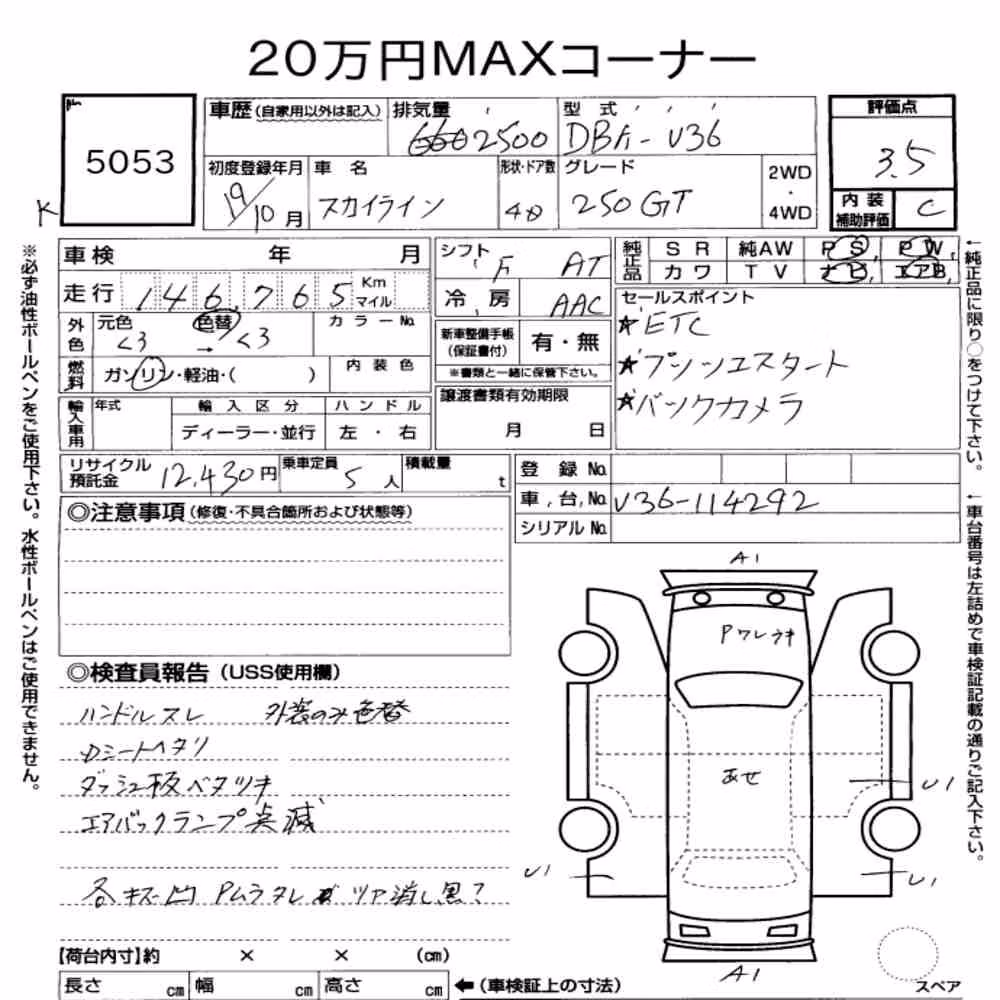 20万円MAXコーナー
5053
K
車歴(自家用以外は記入)
排気量
660 2500
型式
DBA-V36
評価点
3.5
初度登録年月
19/10月
車名
スカイライン
形状・ドア数
4D
グレード
250GT
2WD
・
4WD
内装
補助評価
C
車検 年 月
走行 146,765 Km マイル
シフト
F AT
冷房 AAC
純正品
SR 純AW PS PW
カワ TV ナビ エアB
外色
元色 くろ
色替 → くろ
カラーNo.
燃料
ガソリン・軽油・( )
内装色
新車整備手帳
(保証書付)
有・無
※書類と一緒に保管下さい。
セールスポイント
☆ETC
☆プッシュスタート
☆バックカメラ
輸入車用
年式
輸入区分
ディーラー・並行
ハンドル
左・右
譲渡書類有効期限
月 日
リサイクル
預託金
12,430円
乗車定員
5人
積載量
t
登録No.
車台No. V36-114292
シリアルNo.
◎注意事項(修復・不具合箇所および状態等)
◎検査員報告(USS使用欄)
ハンドルスレ 外装のみ色替
シートヘタリ
ダッシュ板ベタツキ
エアバックランプ点滅
各キズ凹 Pムラタレ ツヤ消し黒?
A1
Pワレウキ
あせ
U1
U1
U1
A1
スペア
【荷台内寸】約 × × (cm)
長さ cm 幅 cm 高さ cm ←(車検証上の寸法)
※必ず油性ボールペンをご使用下さい。水性ボールペンはご使用できません。
←純正品に限り○をつけて下さい。
←車台番号は左詰めで車検証記載の通りご記入下さい。